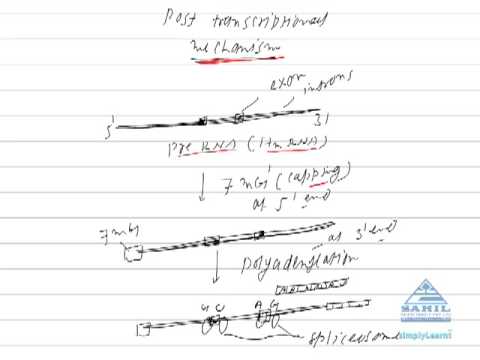 Post transcriptional
mechanism
exon
introns
5'
3'
Pre RNA (HnRNA)
7mG' (capping)
at 5' end
7mG
at 3' end
polyadenylation
AAAAAAA
G U
A G
spliceosome
SAHIL
SimplyLearnt